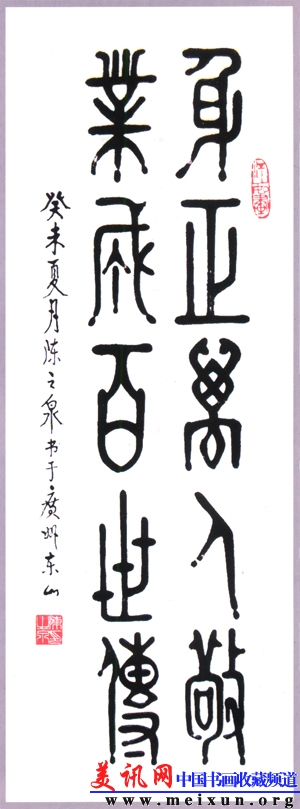 身正萬人敬
業成百世傳
癸未夏月陈之泉书于廣州东山
美讯网 中国书画收藏频道
www.meixun.org